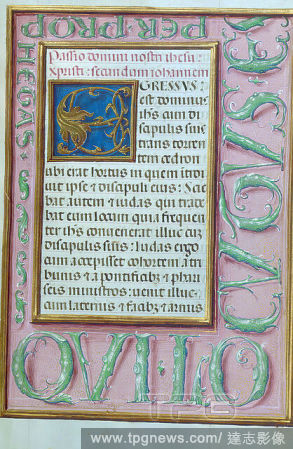 PER·PROP
HEGAS·
QVI·LO
Passio domini nostri ihesu
xpristi: secundum iohannem
EGRESSVS
est dominus
ihs cum di
scipulis suis
trans torren
tem cedron
ubi erat hortus in quem itroi
uit ipse et discipuli eius: Scie
bat autem et iudas qui trade
bat eum locum quia frequen
ter ihs convenerat illuc cum
discipulis suis: Iudas ergo
cum accepisset cohortem a tri
bunis et a pontificibz et phari
seis ministros: venit illuc:
cum laternis et facibz et armis
www.tpgnews.com/ 達志影像